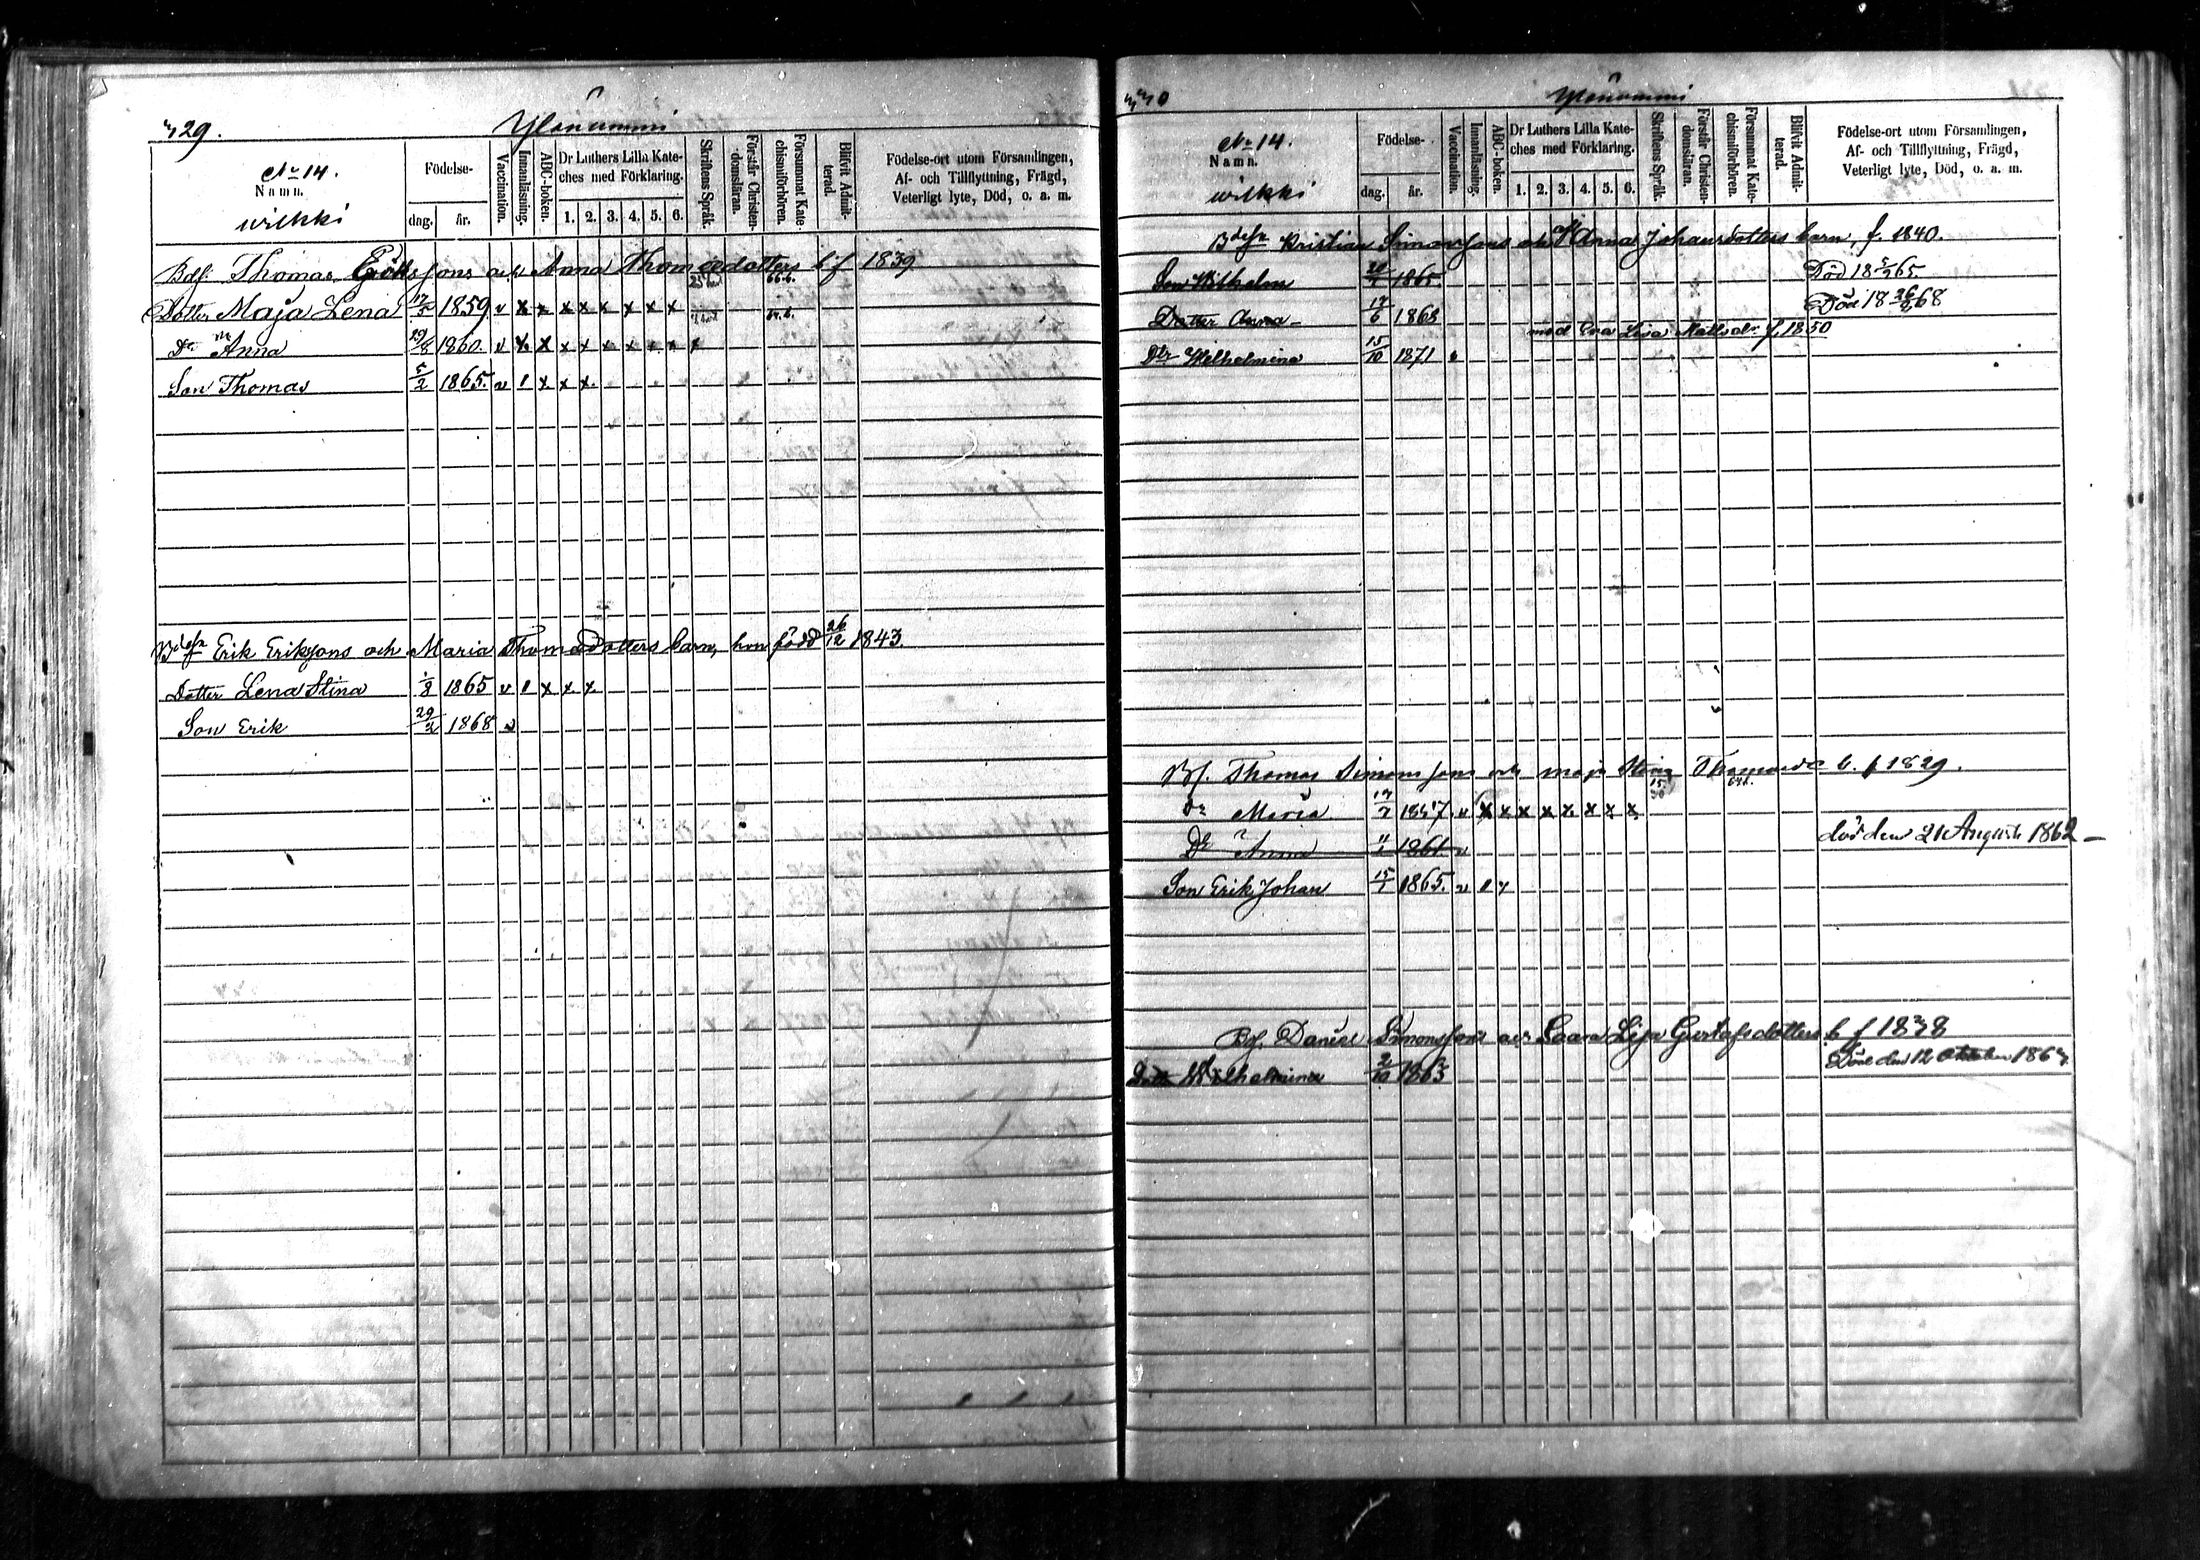 29.
Ylänummi
No 14.
Namn.
wilkki
Födelse-
dag.
år.
Vaccination.
Innanläsning.
ABC-boken.
Dr Luthers Lilla Kate-
ches med Förklaring.
1. 2. 3. 4. 5. 6.
Skriftens Språk.
Förstår Christen-
domsläran.
Försummat Kate-
chismiförhören.
Blifvit Admit-
terad.
Födelse-ort utom Församlingen,
Af- och Tillflyttning, Frägd,
Veterligt lyte, Död, o. a. m.
Thomas och Anna Thomædotters b f 1839
Dotter Maja Lena 17/5 1859 v x x x x x x x x
Dr Anna 1860. v x x x x x x x x x
Son Thomas 5/2 1865. v 1 x x x
Bdesn Erik Eriksons och Maria Thomædotters barn, hon född 26/12 1843.
Dotter Lena Stina 1865 v 1 x x x
Son Erik 29/2 1868 v
No 14.
Namn.
wilkki
Födelse-
dag.
år.
Vaccination.
Innanläsning.
ABC-boken.
Dr Luthers Lilla Kate-
ches med Förklaring.
1. 2. 3. 4. 5. 6.
Skriftens Språk.
Förstår Christen-
domsläran.
Försummat Kate-
chismiförhören.
Blifvit Admit-
terad.
Födelse-ort utom Församlingen,
Af- och Tillflyttning, Frägd,
Veterligt lyte, Död, o. a. m.
Bdesn Kristian Simonsons och Anna Johansdotters barn, f. 1840.
Son Wilhelm 1865. Död 18 65
Dotter Anna 17/6 1868 Död 18 68
med Eva Lisa Mattsdr f. 1850
Dtr Wilhelmina 15/10 1871
Bf. Thomas Simonsons och Maja Stina b. f 1829.
Dr Maria 1857. v x x x x x x x x
Dr Anna 1861. v död den 21 Augusti 1862
Son Erik Johan 1865. v 1
Bf. Daniel Simonsons och Lisa Gustafsdotters b f 1838
Dott Wilhelmina 2/10 1863 Död den 12 Oktober